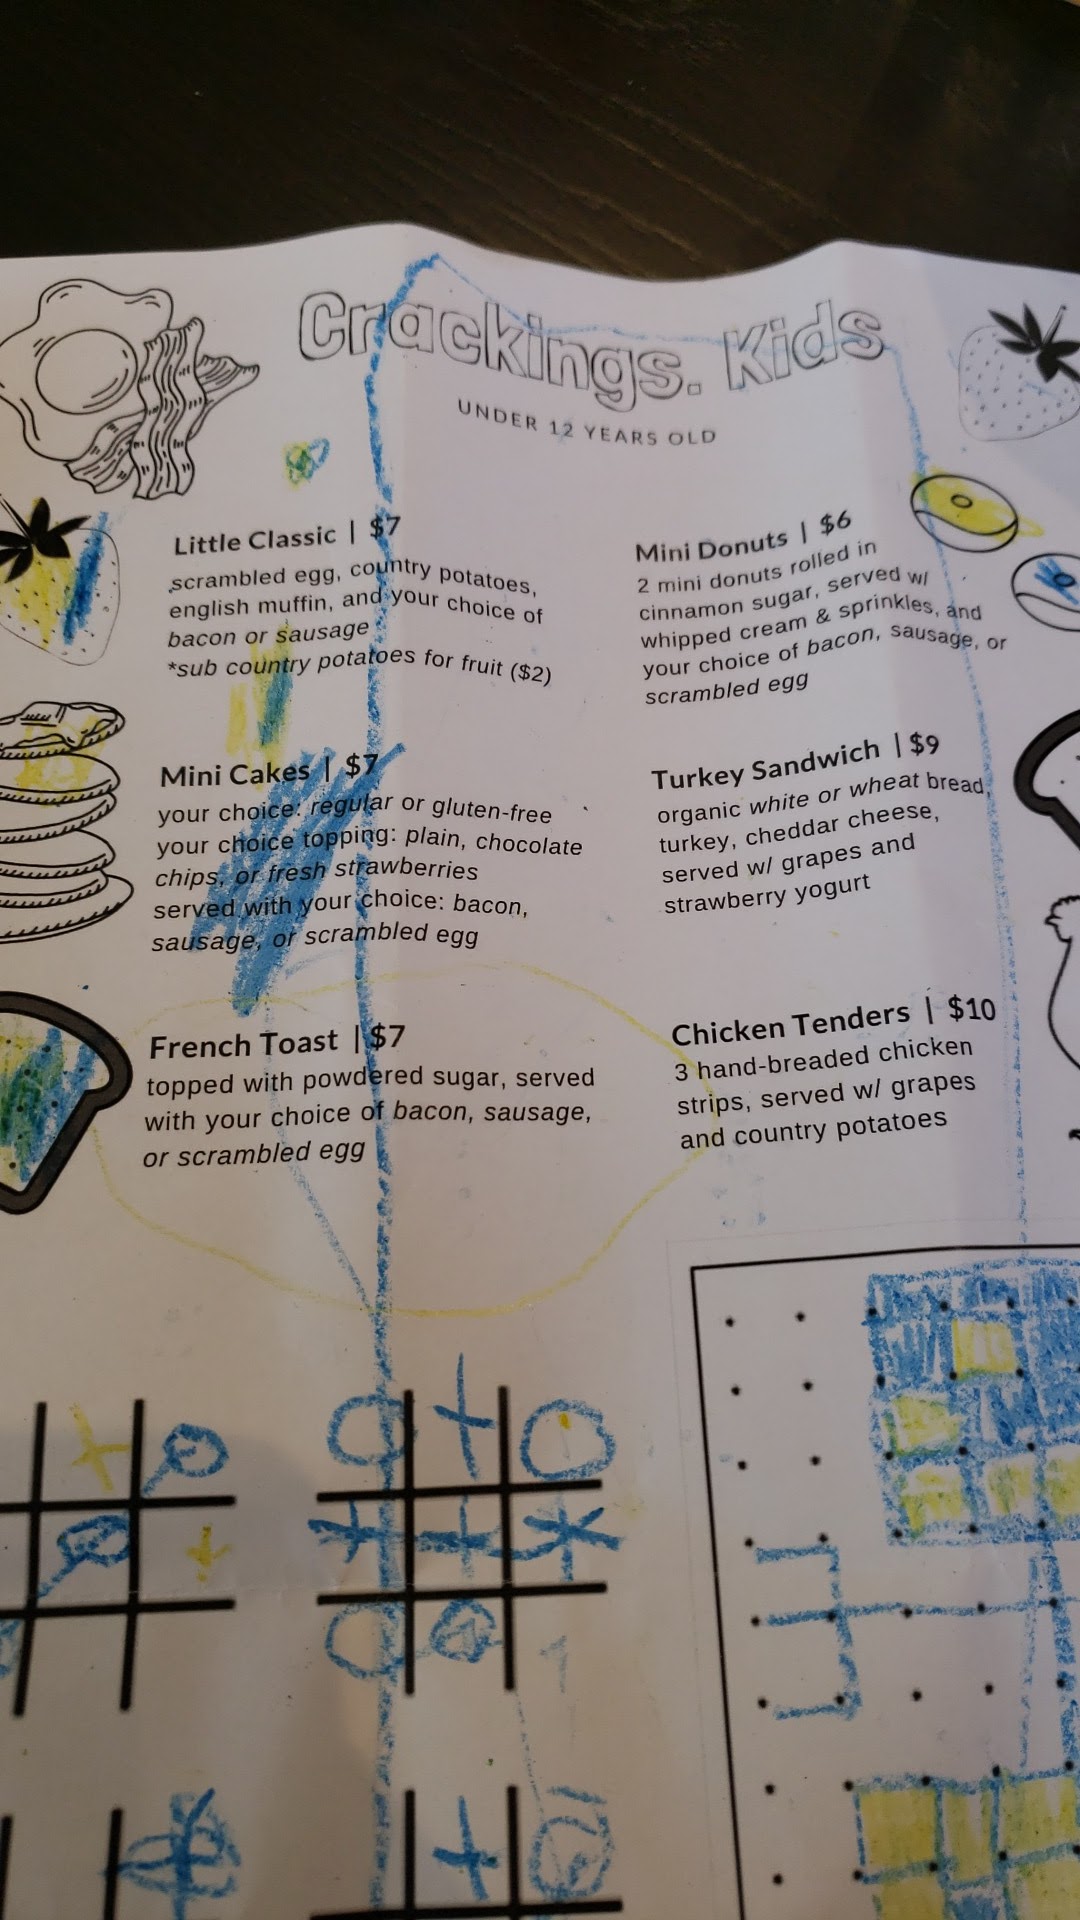 Crackings. Kids
UNDER 12 YEARS OLD
Little Classic | $7
scrambled egg, country potatoes,
english muffin, and your choice of
bacon or sausage
*sub country potatoes for fruit ($2)
Mini Cakes | $7
your choice: regular or gluten-free
your choice topping: plain, chocolate
chips, or fresh strawberries
served with your choice: bacon,
sausage, or scrambled egg
French Toast | $7
topped with powdered sugar, served
with your choice of bacon, sausage,
or scrambled egg
Mini Donuts | $6
2 mini donuts rolled in
cinnamon sugar, served w/
whipped cream & sprinkles, and
your choice of bacon, sausage, or
scrambled egg
Turkey Sandwich | $9
organic white or wheat bread,
turkey, cheddar cheese,
served w/ grapes and
strawberry yogurt
Chicken Tenders | $10
3 hand-breaded chicken
strips, served w/ grapes
and country potatoes